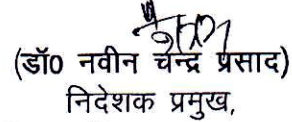 (डॉ0 नवीन चन्द्र प्रसाद)
निदेशक प्रमुख,